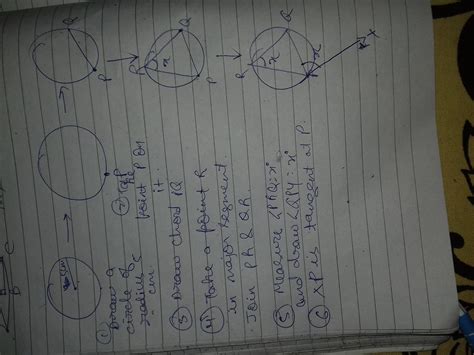 ① Draw a
circle of
radius
cm
② Take
point P on
it.
③ Draw chord PQ
④ Take a point R
in major segment.
Join PR & QR
⑤ Measure ∠PRQ=x°
and draw ∠QPY=x°
⑥ XP is tangent at P.
P
Q
R
Q
P
x
R
Q
P
x
x
X
C
B